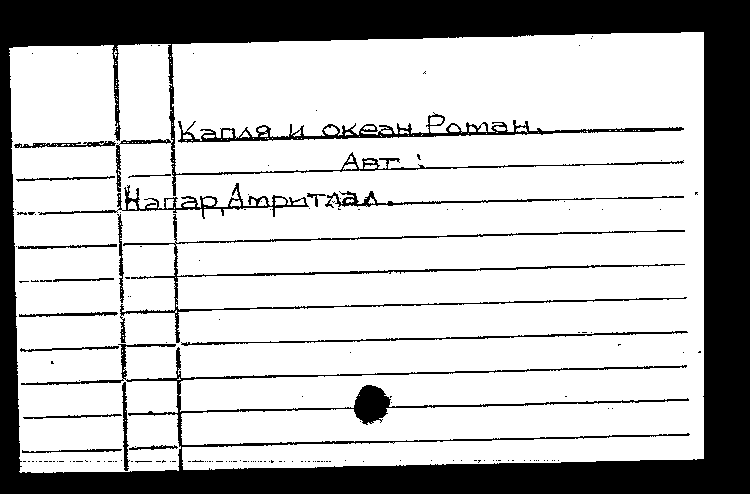 Капля и океан. Роман.
Авт. :
Нагар, Амритлал.